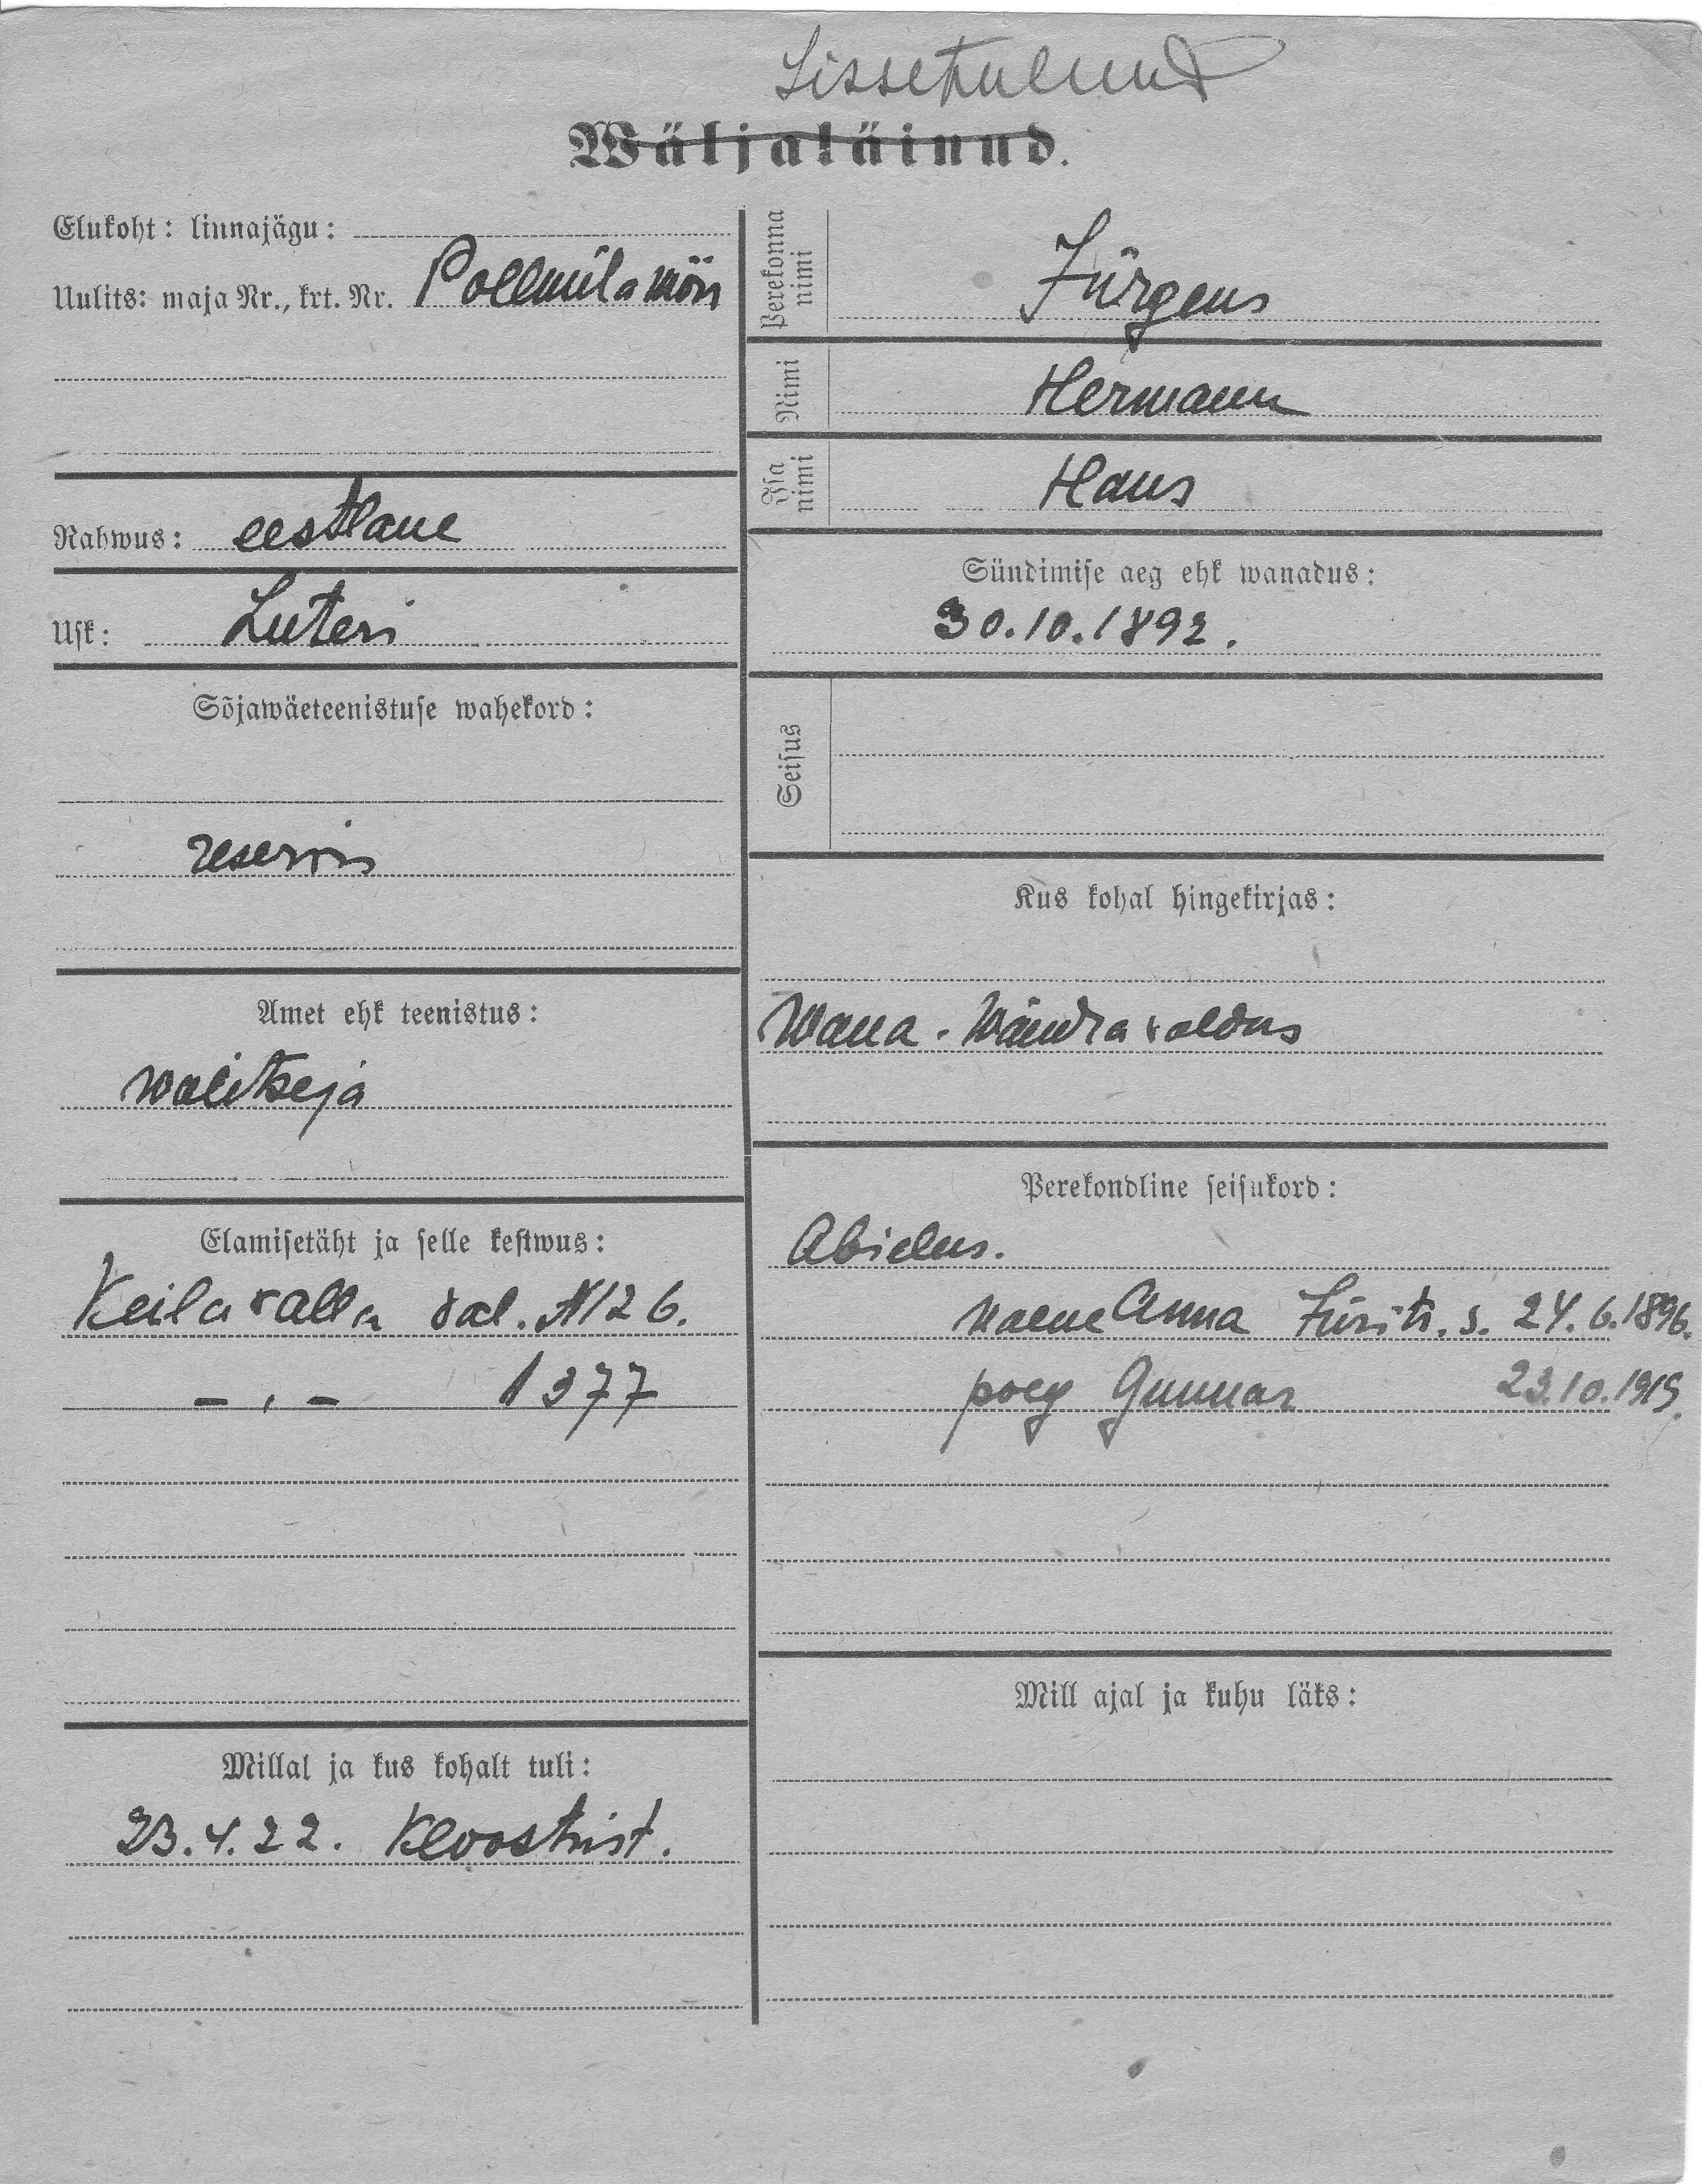 Sissetulnud
Wäljaläinud.
Elukoht: linnajägu:
Uulits: maja Nr., krt. Nr. Pollküla mõis
Rahwus: eestlane
Usk: Luteri
Sõjawäeteenistuse wahekord:
reservis
Amet ehk teenistus:
walitseja
Elamisetäht ja selle kestwus:
Keila valla val. N 126.
– „ – 1377
Millal ja kus kohalt tuli:
23.4.22. Kloostrist.
Perekonna nimi
Jürgens
Nimi
Hermann
Isa nimi
Hans
Sündimise aeg ehk wanadus:
30.10.1892.
Seisus
Kus kohal hingekirjas:
Wana-Wändra valdas
Perekondline seisukord:
Abielus.
naene Anna Jürit. s. 24.6.1896.
poeg Gunnar 23.10.1919.
Mill ajal ja kuhu läks: